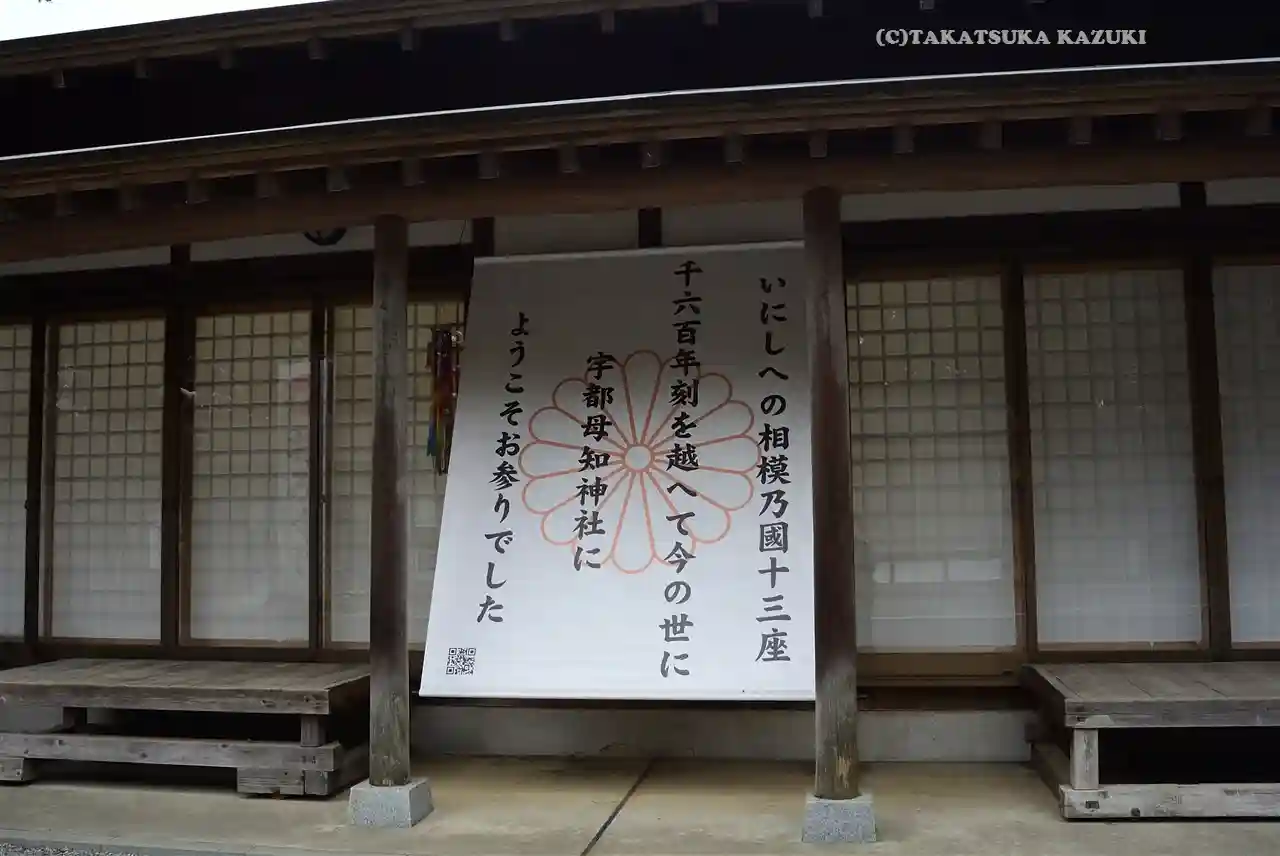 (C)TAKATSUKA KAZUKI
いにしへの相模乃國十三座
千六百年刻を越へて今の世に
宇都母知神社に
ようこそお参りでした